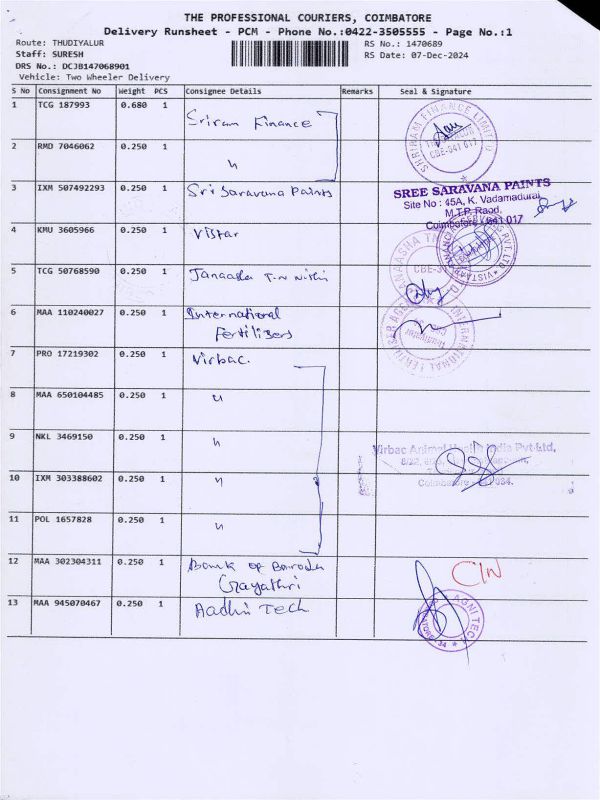 THE PROFESSIONAL COURIERS, COIMBATORE
Delivery Runsheet - PCM - Phone No.:0422-3505555 - Page No.:1
Route: THUDIYALUR
RS No.: 1470689
Staff: SURESH
RS Date: 07-Dec-2024
DRS No.: DCJB147068901
Vehicle: Two Wheeler Delivery
S No Consignment No Weight PCS Consignee Details Remarks Seal & Signature
1 TCG 187993 0.680 1 Sriram Finance
SHRIRAM FINANCE LIMITED
CBE-641 017
2 RMD 7046062 0.250 1 "
3 IXM 507492293 0.250 1 Sri Saravana Paints
SREE SARAVANA PAINTS
Site No : 45A, K. Vadamadurai
M.T.P. Raod,
Coimbatore - 641 017
4 KMU 3605966 0.250 1 Vistar
5 TCG 50768590 0.250 1 Janaasha
6 MAA 110240027 0.250 1 International
Fertilisers
7 PRO 17219302 0.250 1 Virbac.
8 MAA 650104485 0.250 1 "
9 NKL 3469150 0.250 1 "
Virbac Animal Health India Pvt Ltd,
10 IXM 303388602 0.250 1 "
11 POL 1657828 0.250 1 "
12 MAA 302304311 0.250 1 Bank of Baroda
Gayathri
13 MAA 945070467 0.250 1 Aadhi Tech
AGNI TECH